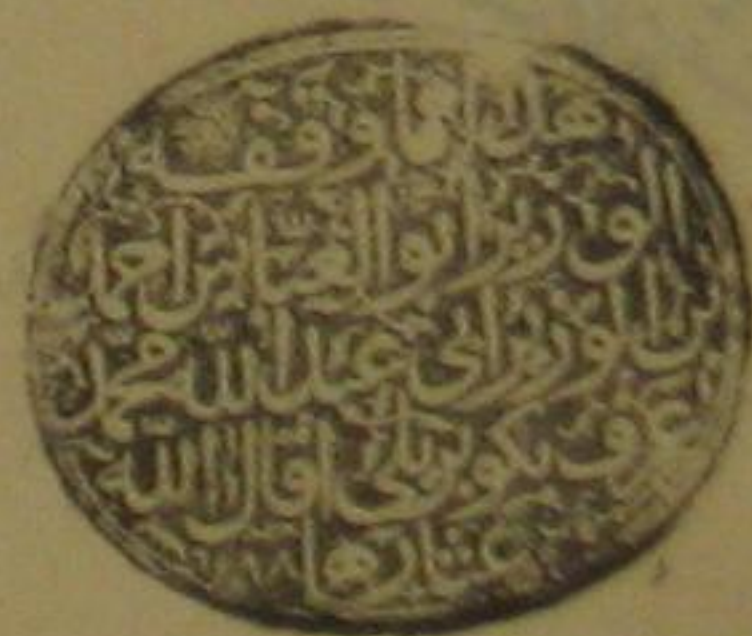 هذا مما وقفه
الوزير ابو العباس احمد
بن الوزير ابي عبد الله محمد
عرف بكوبريلي اقال الله
عثارهما